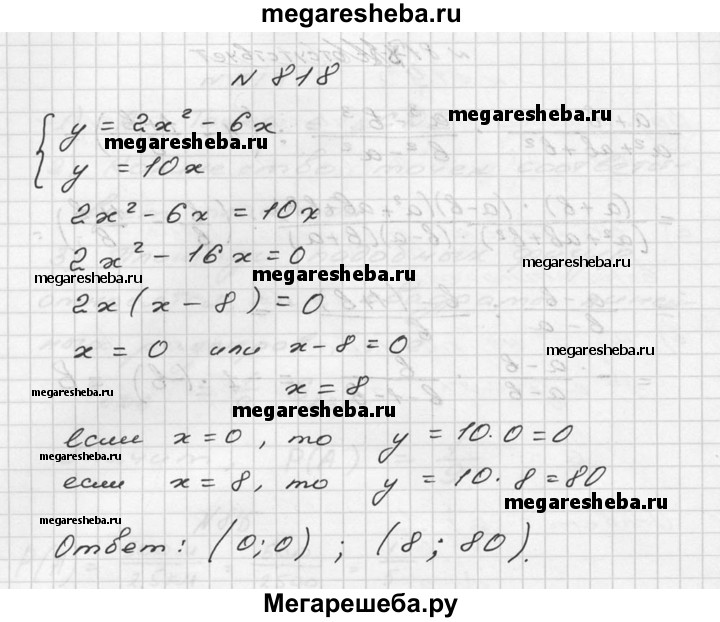 megaresheba.ru
№ 818
y = 2x² - 6x
megaresheba.ru
megaresheba.ru
y = 10x
2x² - 6x = 10x
2x² - 16x = 0
megaresheba.ru
megaresheba.ru
2x(x - 8) = 0
x = 0 или x - 8 = 0
megaresheba.ru
x = 8
megaresheba.ru
megaresheba.ru
если x = 0, то y = 10·0 = 0
megaresheba.ru
если x = 8, то y = 10·8 = 80
megaresheba.ru
megaresheba.ru
Ответ: (0; 0); (8; 80).
Мегарешеба.ру